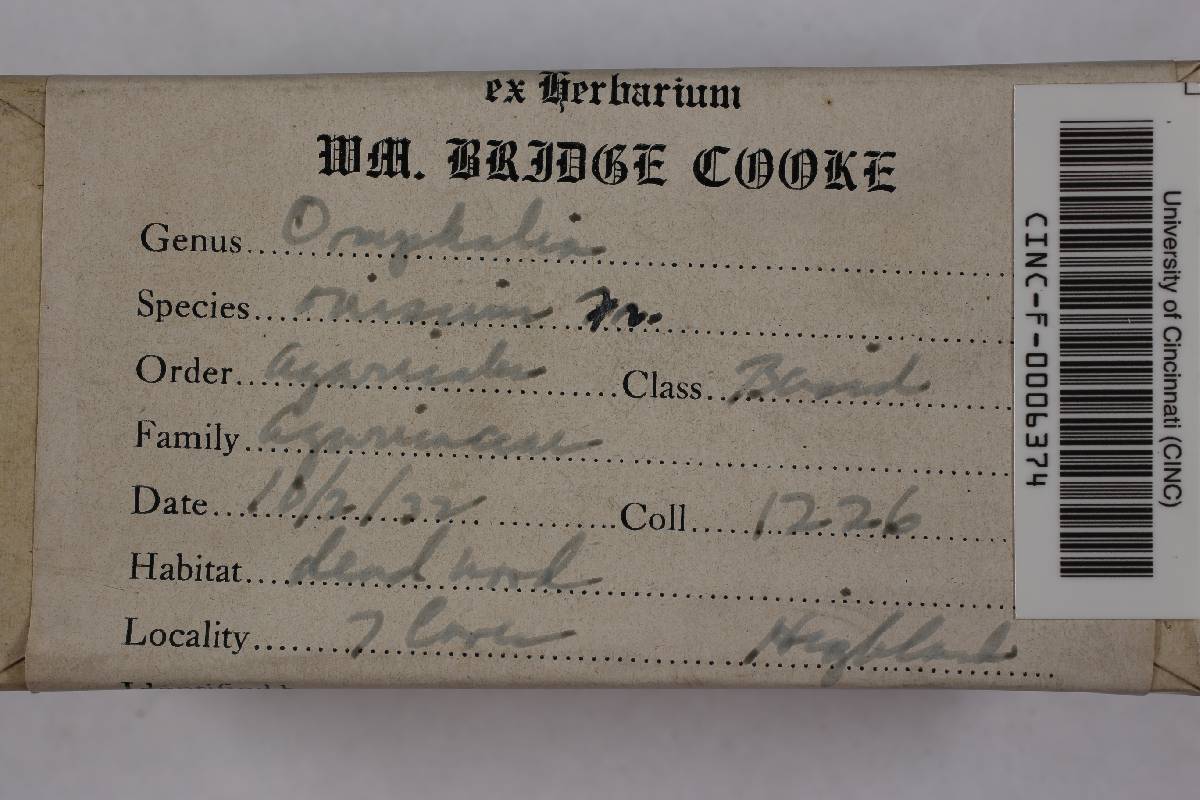 ex Herbarium
WM. BRIDGE COOKE
Genus Omphalia
Species Fr.
Order Agaricales Class Basid
Family Agaricaceae
Date 10/2/32 Coll 1226
Habitat dead wood
Locality 7 Caves Highland
University of Cincinnati (CINC)
CINC-F-0006374